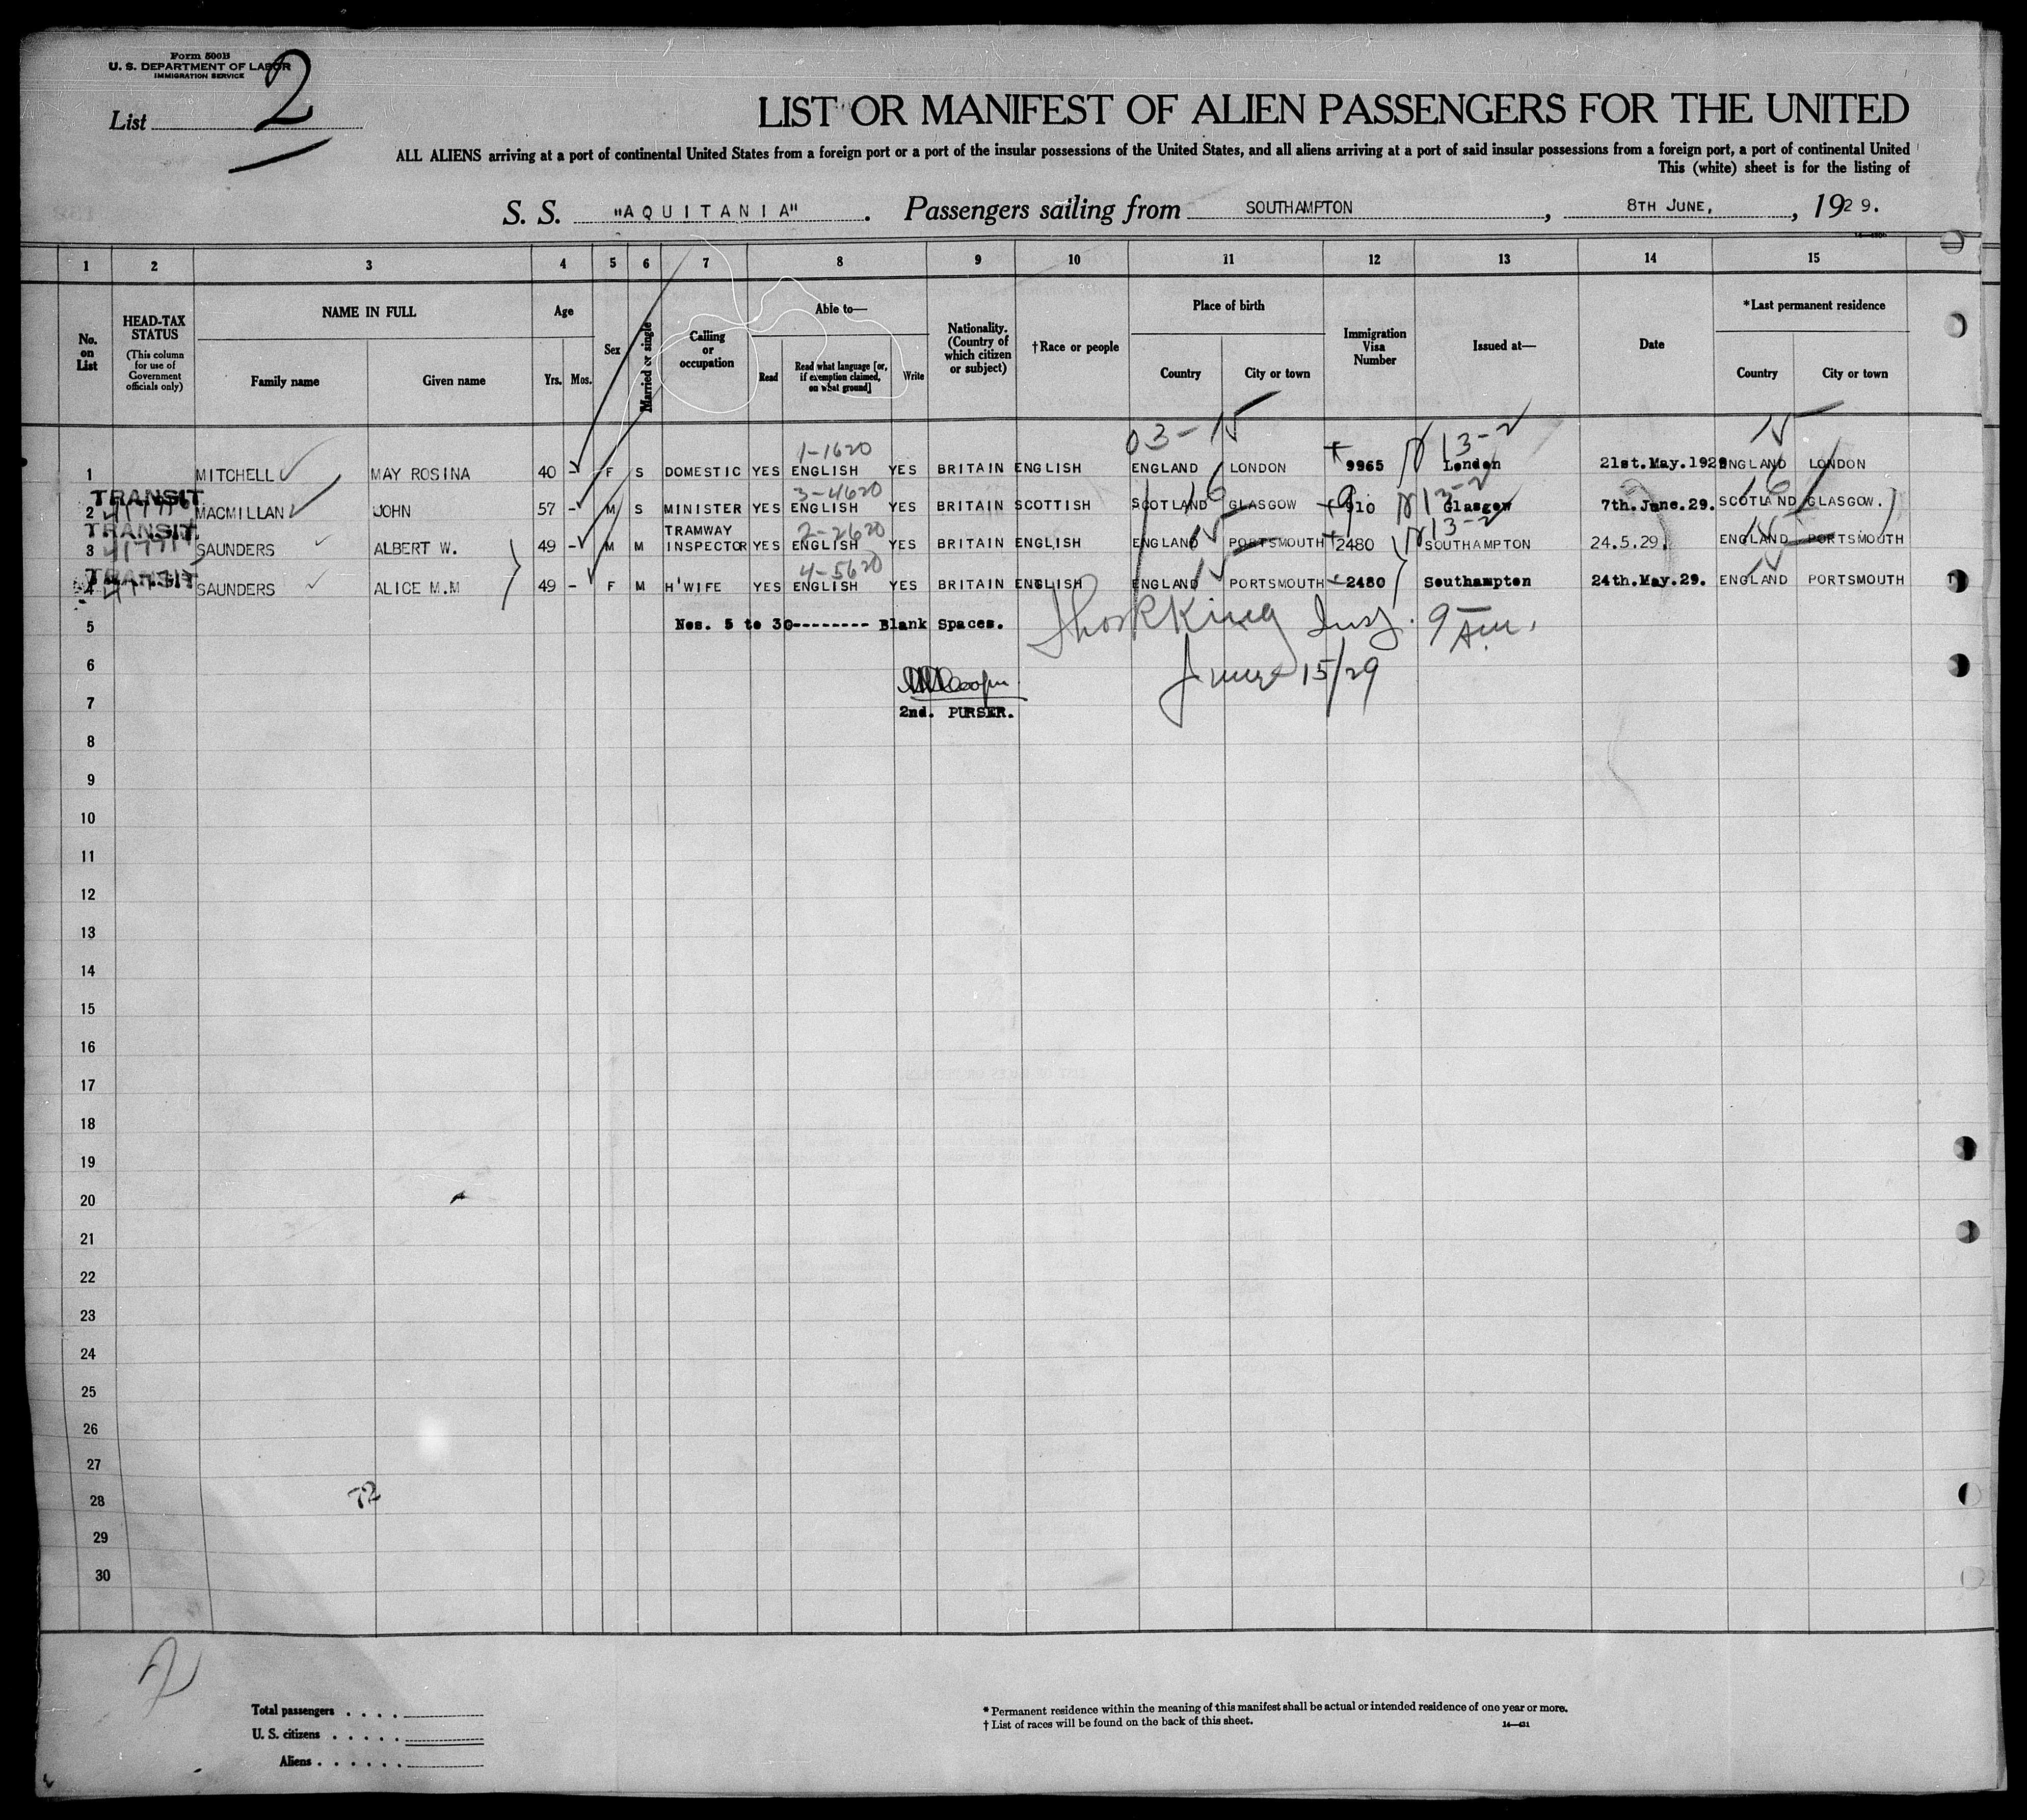 Form 500B
U. S. DEPARTMENT OF LABOR
IMMIGRATION SERVICE
List 2
LIST OR MANIFEST OF ALIEN PASSENGERS FOR THE UNITED
ALL ALIENS arriving at a port of continental United States from a foreign port or a port of the insular possessions of the United States, and all aliens arriving at a port of said insular possessions from a foreign port, a port of continental United
This (white) sheet is for the listing of
S. S. "AQUITANIA". Passengers sailing from SOUTHAMPTON, 8TH JUNE, , 1929.
1 2 3 4 5 6 7 8 9 10 11 12 13 14 15
No. on List
HEAD-TAX STATUS
(This column for use of Government officials only)
NAME IN FULL
Family name Given name
Age
Yrs. Mos.
Sex
Married or single
Calling or occupation
Able to—
Read Read what language [or, if exemption claimed, on what ground] Write
Nationality. (Country of which citizen or subject)
†Race or people
Place of birth
Country City or town
Immigration Visa Number
Issued at—
Date
*Last permanent residence
Country City or town
03-15 13-2 15
1-1620
1 MITCHELL MAY ROSINA 40 - F S DOMESTIC YES ENGLISH YES BRITAIN ENGLISH ENGLAND LONDON 9965 London 21st.May.1929 ENGLAND LONDON
TRANSIT 3-4620 16 13-2 16
2 MACMILLAN JOHN 57 - M S MINISTER YES ENGLISH YES BRITAIN SCOTTISH SCOTLAND GLASGOW 910 Glasgow 7th.June.29. SCOTLAND GLASGOW.
TRANSIT TRAMWAY 2-2620 15 13-2 15
3 SAUNDERS ALBERT W. 49 - M M INSPECTOR YES ENGLISH YES BRITAIN ENGLISH ENGLAND PORTSMOUTH 2480 SOUTHAMPTON 24.5.29. ENGLAND PORTSMOUTH
TRANSIT 4-5620 15 15
4 SAUNDERS ALICE M.M 49 - F M H'WIFE YES ENGLISH YES BRITAIN ENGLISH ENGLAND PORTSMOUTH 2480 Southampton 24th.May.29. ENGLAND PORTSMOUTH
5 Nos. 5 to 30-------- Blank Spaces. King Insp. 9 Am.
6 June 15/29
7 2nd. PURSER.
8
9
10
11
12
13
14
15
16
17
18
19
20
21
22
23
24
25
26
27
28 72
29
30
2
Total passengers . . . .
U. S. citizens . . . . .
Aliens . . . . . .
* Permanent residence within the meaning of this manifest shall be actual or intended residence of one year or more.
† List of races will be found on the back of this sheet. 14—431